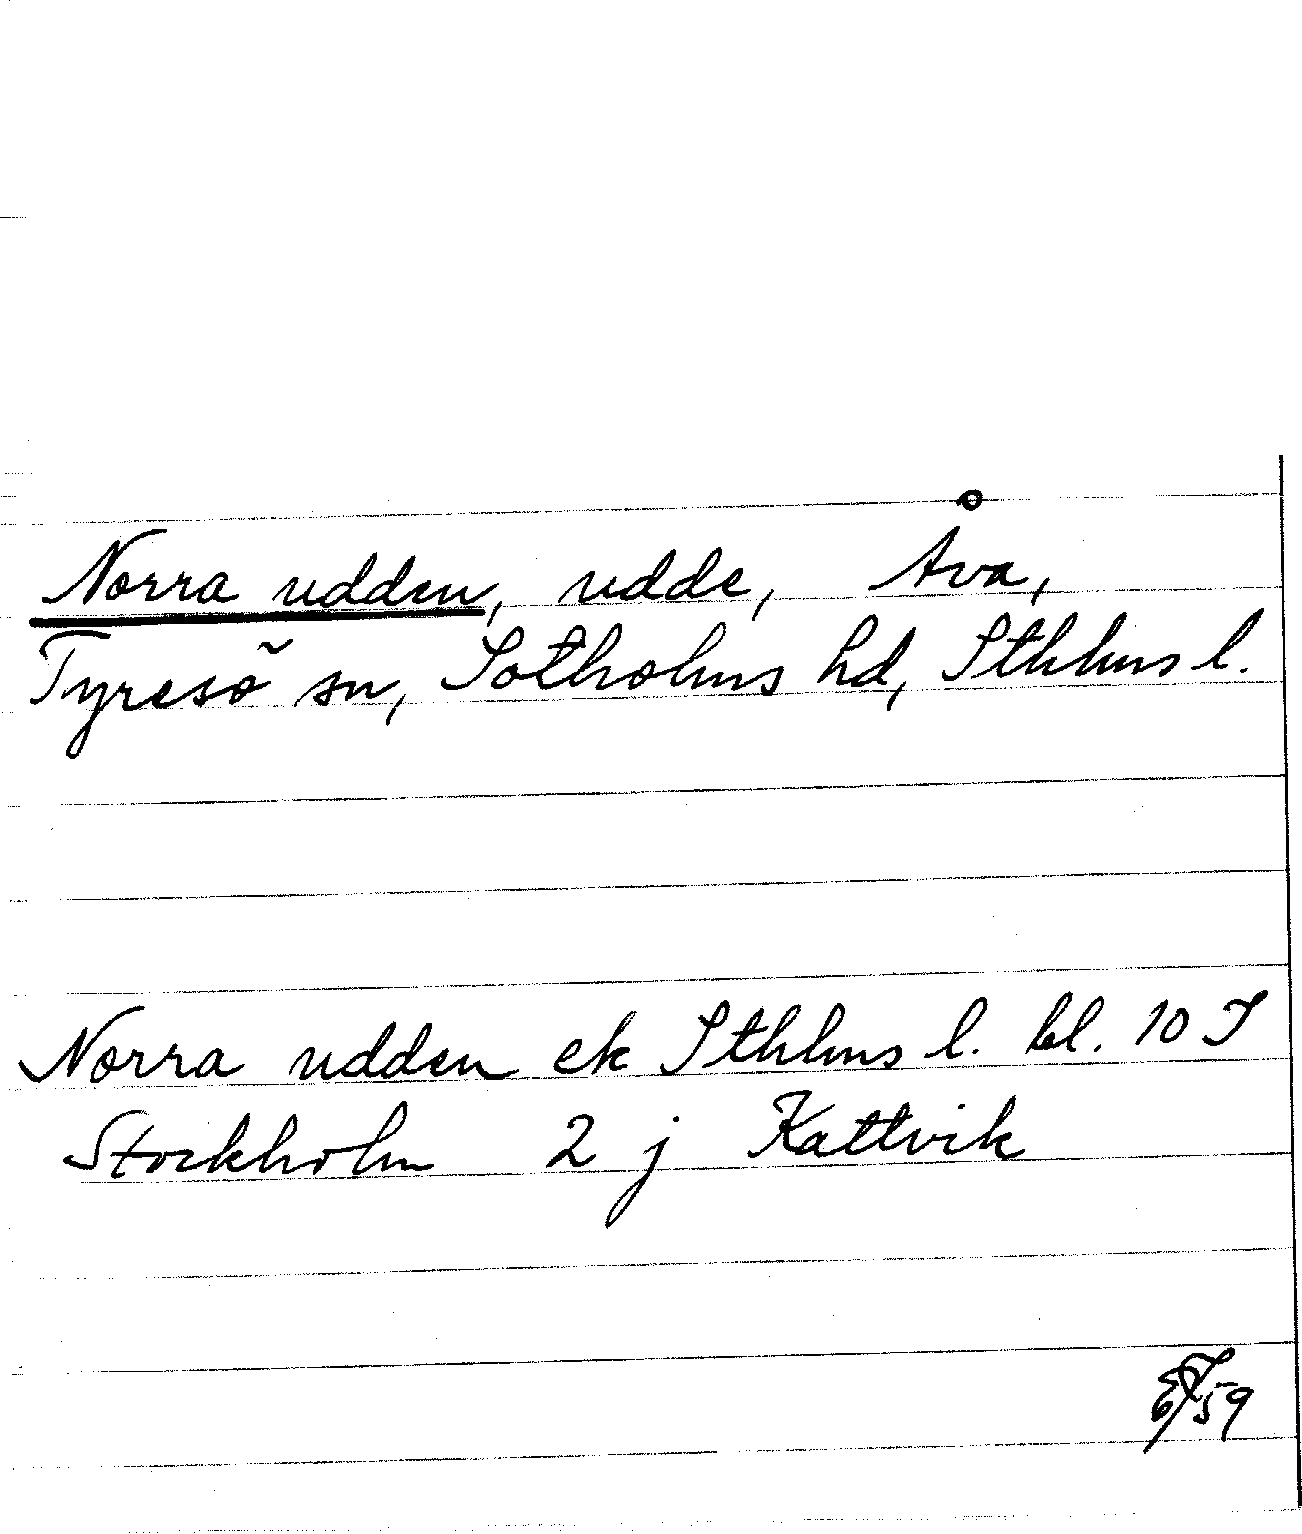 Norra udden, udde, Åva,
Tyresö sn, Sotholms hd, Sthlms l.
Norra udden ek Sthlms l. bl. 10 I
Stockholm 2 j Kattvik
59